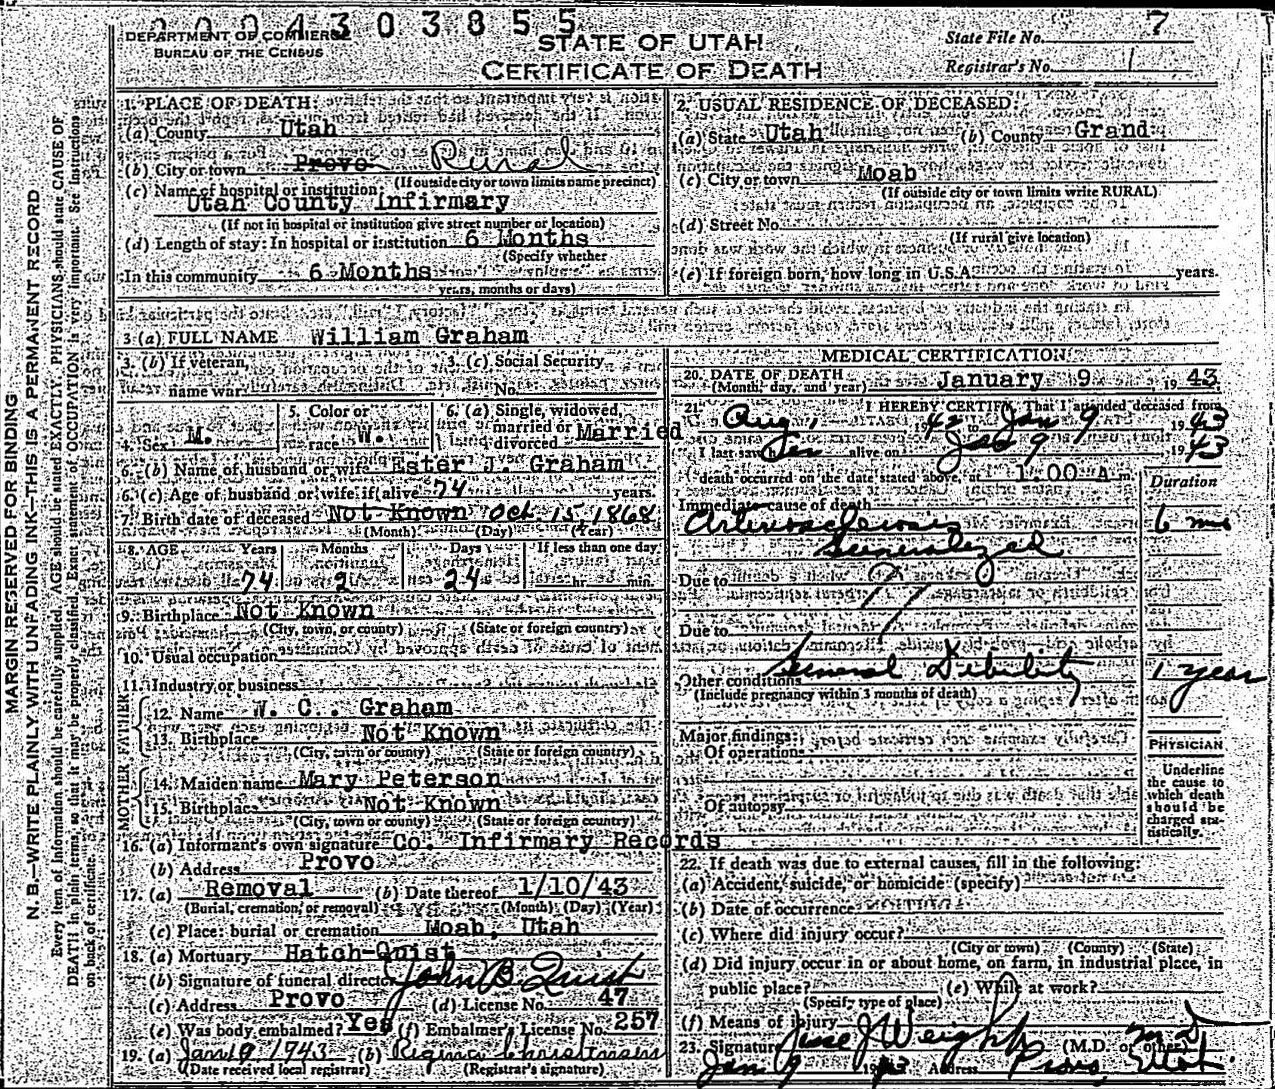 2004303855
DEPARTMENT OF COMMERCE
BUREAU OF THE CENSUS
STATE OF UTAH
CERTIFICATE OF DEATH
State File No. 7
Registrar's No. 1
MARGIN RESERVED FOR BINDING
N. B.—WRITE PLAINLY WITH UNFADING INK—THIS IS A PERMANENT RECORD
Every item of information should be carefully supplied. AGE should be stated EXACTLY. PHYSICIANS should state CAUSE OF
DEATH in plain terms, so that it may be properly classified. Exact statement of OCCUPATION is very important. See instructions
on back of certificate.
1. PLACE OF DEATH:
(a) County Utah
(b) City or town Provo Rural
(If outside city or town limits name precinct)
(c) Name of hospital or institution:
Utah County Infirmary
(If not in hospital or institution give street number or location)
(d) Length of stay: In hospital or institution 6 Months
(Specify whether
In this community 6 Months
years, months or days)
2. USUAL RESIDENCE OF DECEASED:
(a) State Utah (b) County Grand
(c) City or town Moab
(If outside city or town limits write RURAL)
(d) Street No.
(If rural give location)
(e) If foreign born, how long in U.S.A. years.
3 (a) FULL NAME William Graham
3. (b) If veteran,
name war
3. (c) Social Security
No.
4. Sex M.
5. Color or
race W.
6. (a) Single, widowed,
married or
divorced Married
6. (b) Name of husband or wife Ester J. Graham
6. (c) Age of husband or wife if alive 74 years.
7. Birth date of deceased Not Known Oct 15, 1868
(Month) (Day) (Year)
8. AGE Years Months Days If less than one day
74 2 24 hr. min.
9. Birthplace Not Known
(City, town, or county) (State or foreign country)
10. Usual occupation
11. Industry or business
FATHER
12. Name W. C. Graham
13. Birthplace Not Known
(City, town or county) (State or foreign country)
MOTHER
14. Maiden name Mary Peterson
15. Birthplace Not Known
(City, town or county) (State or foreign country)
16. (a) Informant's own signature Co. Infirmary Records
(b) Address Provo
17. (a) Removal (b) Date thereof 1/10/43
(Burial, cremation, or removal) (Month) (Day) (Year)
(c) Place: burial or cremation Moab, Utah
18. (a) Mortuary Hatch-Quist
(b) Signature of funeral director John B. Quist
(c) Address Provo (d) License No. 47
(e) Was body embalmed? Yes (f) Embalmer's License No. 257
19. (a) Jan 9 1943 (b) Regina Christensen
(Date received local registrar) (Registrar's signature)
MEDICAL CERTIFICATION
20. DATE OF DEATH
(Month, day, and year) January 9 1943
21. I HEREBY CERTIFY, That I attended deceased from
Aug, 1942 to Jan 9 1943
I last saw alive on Jan 9 1943
death occurred on the date stated above, at 1.00 A m.
Duration
Immediate cause of death
Arteriosclerosis 6 mo
Generalized
Due to
Due to
Other conditions General Debility 1 year
(Include pregnancy within 3 months of death)
Major findings:
Of operations
Of autopsy
PHYSICIAN
Underline
the cause to
which death
should be
charged sta-
tistically.
22. If death was due to external causes, fill in the following:
(a) Accident, suicide, or homicide (specify)
(b) Date of occurrence
(c) Where did injury occur?
(City or town) (County) (State)
(d) Did injury occur in or about home, on farm, in industrial place, in
public place? (e) While at work?
(Specify type of place)
(f) Means of injury
23. Signature Jesse J Weight M D (M.D. or other)
Jan 9 1943 Address Provo, Utah